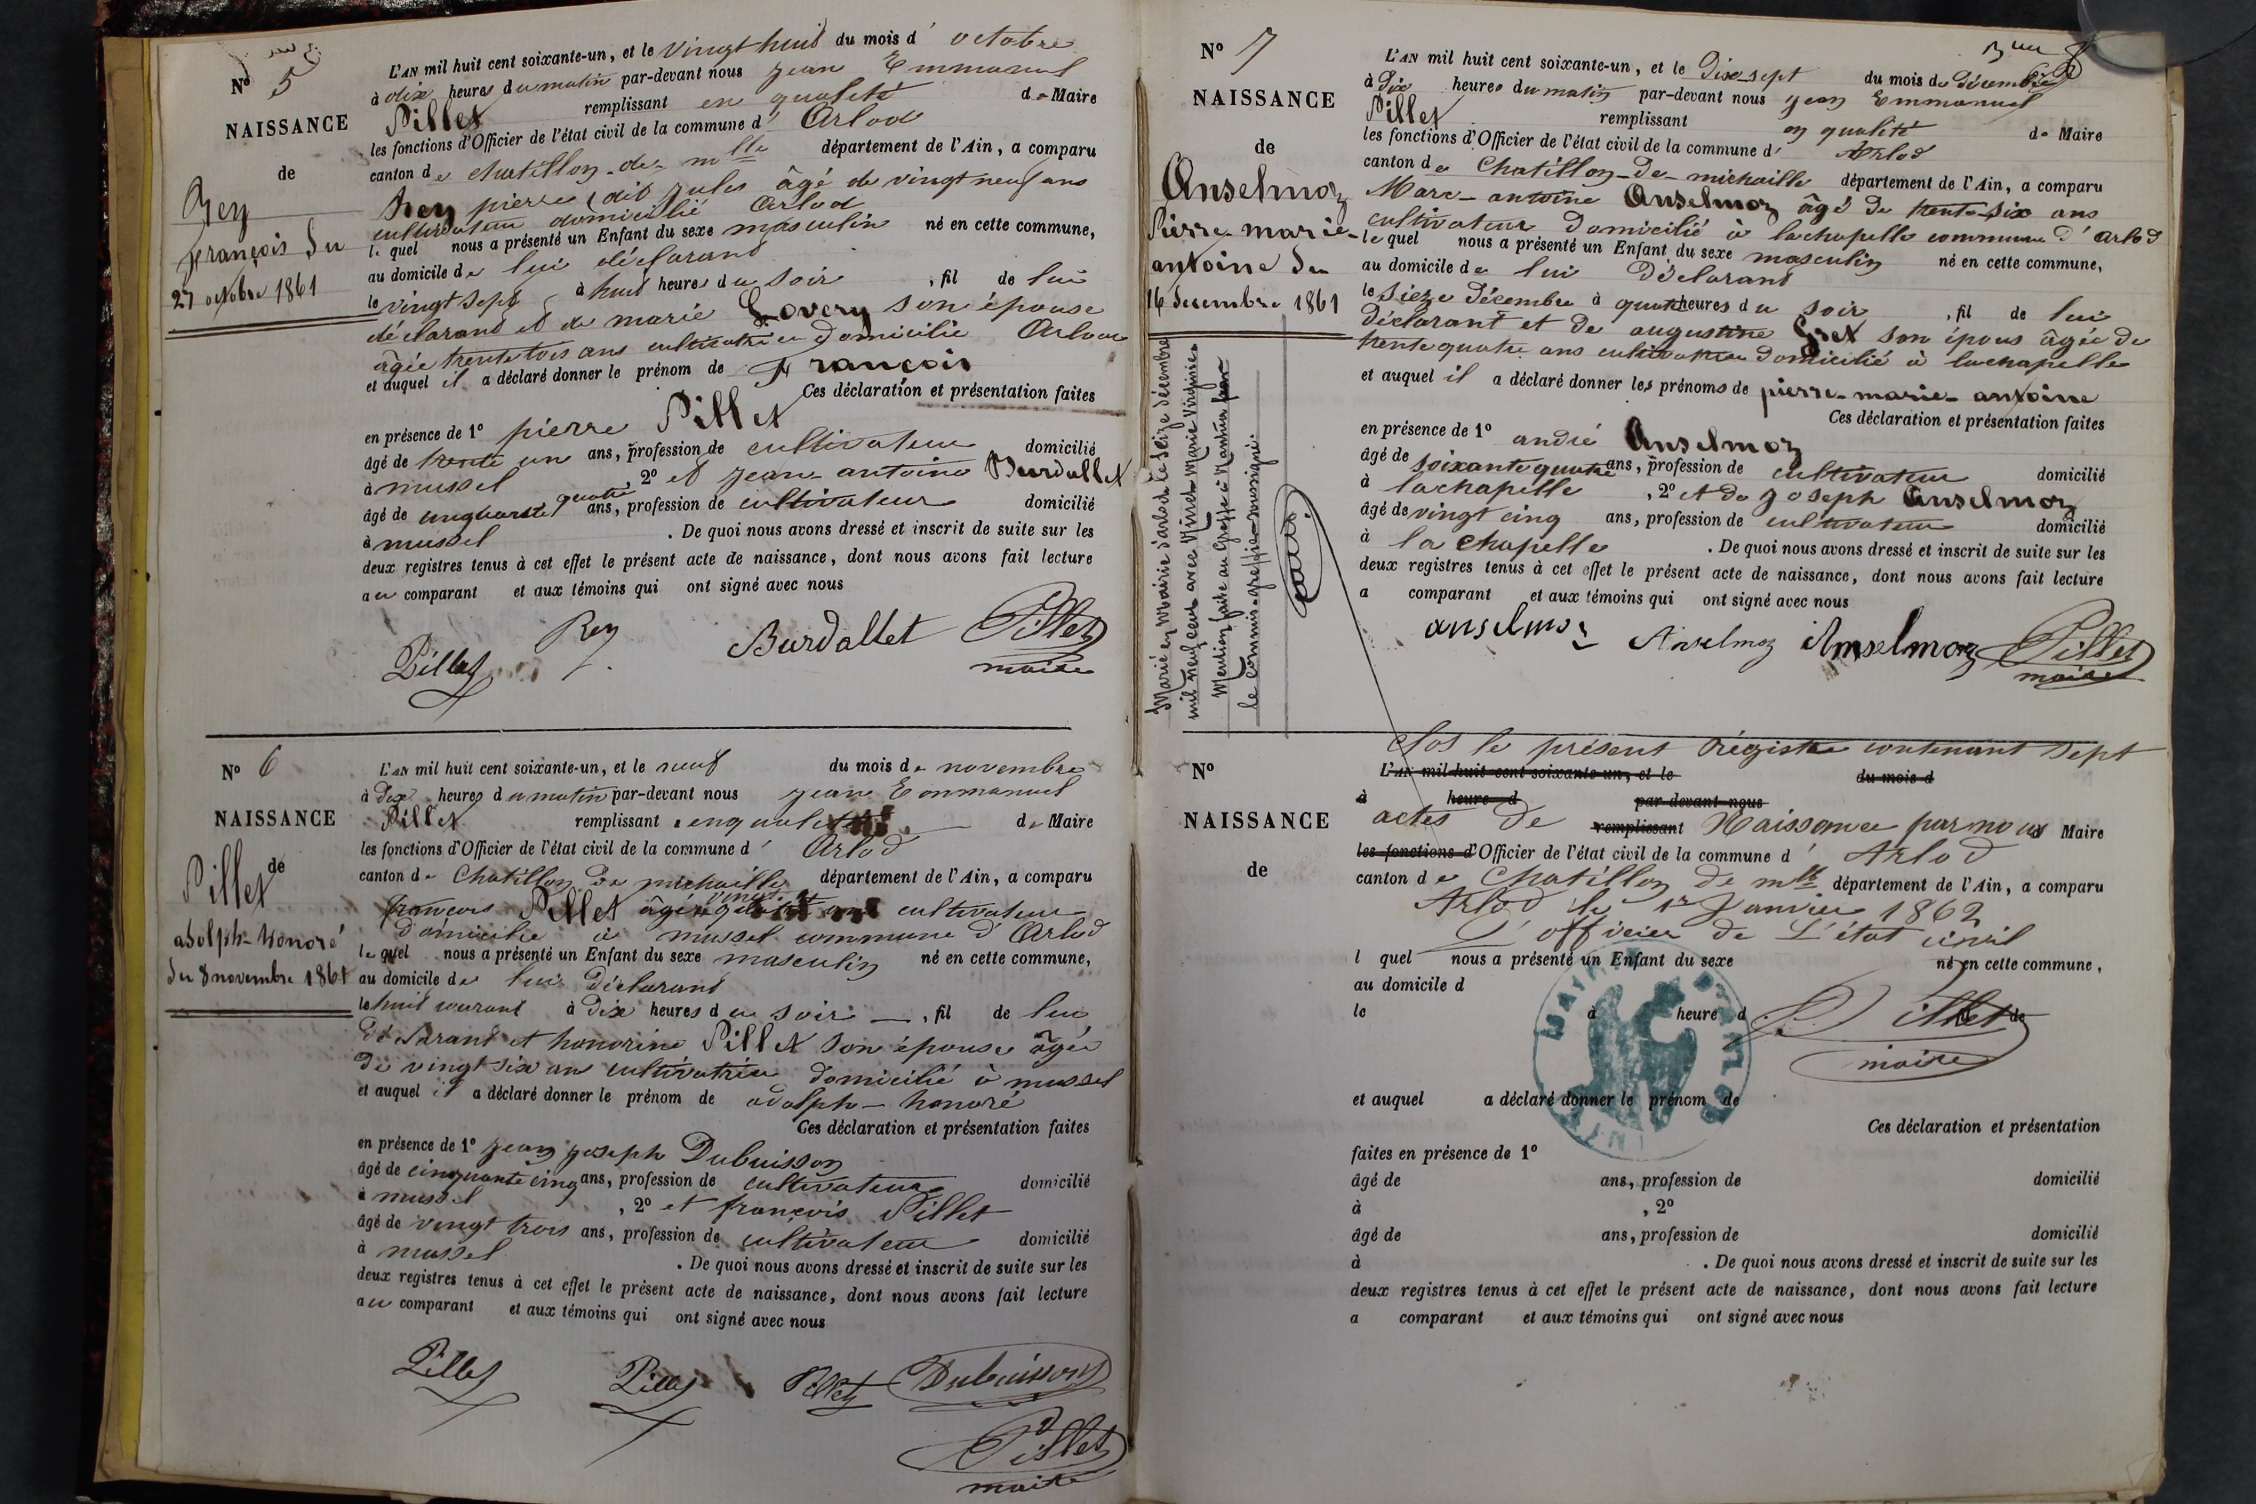 N° 5
NAISSANCE
de
Rey
François du
27 octobre 1861
L'AN mil huit cent soixante-un, et le vingt huit du mois d' octobre
à dix heures du matin par-devant nous jean Emmanuel
Pillet remplissant en qualité de Maire
les fonctions d'Officier de l'état civil de la commune d' Arlod
canton de chatillon-de-mlle département de l'Ain, a comparu
Rey pierre (dit jules âgé de vingt neuf ans
cultivateur domicilié Arlod
le quel nous a présenté un Enfant du sexe masculin né en cette commune,
au domicile de lui déclarant
le vingt sept à huit heures du soir , fil de lui
déclarant et de marie Lovery son épouse
âgée trente trois ans cultivatrice domicilié Arlod
et auquel il a déclaré donner le prénom de François
Ces déclaration et présentation faites
en présence de 1° pierre Pillet
âgé de trente un ans, profession de cultivateur domicilié
à mussel , 2° et jean antoine Burdallet
âgé de cinquante quatre ans, profession de cultivateur domicilié
à mussel . De quoi nous avons dressé et inscrit de suite sur les
deux registres tenus à cet effet le présent acte de naissance, dont nous avons fait lecture
au comparant et aux témoins qui ont signé avec nous
Pillet Rey Burdallet Pillet
maire
N° 6
NAISSANCE
de
Pillet
adolph-honoré
du 8 novembre 1861
L'AN mil huit cent soixante-un, et le neuf du mois de novembre
à dix heures du matin par-devant nous jean Emmanuel
Pillet remplissant en qualité de Maire
les fonctions d'Officier de l'état civil de la commune d' Arlod
canton de Chatillon de michaille département de l'Ain, a comparu
françois Pillet âgé cultivateur
domicilié à mussel commune d' Arlod
le quel nous a présenté un Enfant du sexe masculin né en cette commune,
au domicile de lui déclarant
le huit courant à dix heures du soir , fil de lui
déclarant et honorine Pillet son épouse âgée
de vingt six ans cultivatrice domicilié à mussel
et auquel il a déclaré donner le prénom de adolph-honoré
Ces déclaration et présentation faites
en présence de 1° jean joseph Dubuisson
âgé de cinquante cinq ans, profession de cultivateur domicilié
à mussel , 2° et françois Pillet
âgé de vingt trois ans, profession de cultivateur domicilié
à mussel . De quoi nous avons dressé et inscrit de suite sur les
deux registres tenus à cet effet le présent acte de naissance, dont nous avons fait lecture
au comparant et aux témoins qui ont signé avec nous
Pillet Pillet Pillet Dubuisson
Pillet
maire
N° 7
NAISSANCE
de
Anselmoz
Pierre-marie-
antoine du
16 decembre 1861
Marié en Mairie d'arlod le seize décembre
mil neuf cent avec Vincet Marie Virginie.
Mention faite au Greffe à Nantua par
le commis-greffier soussigné.
L'AN mil huit cent soixante-un, et le dix-sept du mois de décembre
à dix heures du matin par-devant nous jean Emmanuel
Pillet remplissant en qualité de Maire
les fonctions d'Officier de l'état civil de la commune d' Arlod
canton de Chatillon-de-michaille département de l'Ain, a comparu
Marc-antoine Anselmoz âgé de trente-six ans
cultivateur domicilié à lachapelle commune d' arlod
le quel nous a présenté un Enfant du sexe masculin né en cette commune,
au domicile de lui déclarant
le sieze décembre à quatre heures du soir , fil de lui
déclarant et de augustine Gret son épous âgée de
trente quatre ans cultivatrice domicilié à lachapelle
et auquel il a déclaré donner les prénoms de pierre-marie-antoine
Ces déclaration et présentation faites
en présence de 1° andré Anselmoz
âgé de soixante quatre ans, profession de cultivateur domicilié
à lachapelle , 2° et de joseph Anselmoz
âgé de vingt cinq ans, profession de cultivateur domicilié
à la chapelle . De quoi nous avons dressé et inscrit de suite sur les
deux registres tenus à cet effet le présent acte de naissance, dont nous avons fait lecture
a comparant et aux témoins qui ont signé avec nous
anselmoz Anselmoz Anselmoz Pillet
maire
N°
NAISSANCE
de
Clos le présent régistre contenant sept
L'AN mil huit cent soixante-un, et le du mois d
à heure d par-devant nous
actes de remplissant Naissance par nous Maire
les fonctions d'Officier de l'état civil de la commune d' Arlod
canton de Chatillon de mlle département de l'Ain, a comparu
Arlod le 1er Janvier 1862
L'officier de L'état civil
l quel nous a présenté un Enfant du sexe né en cette commune,
au domicile d
le à heure d fil de
Pillet
maire
et auquel a déclaré donner le prénom de
Ces déclaration et présentation
faites en présence de 1°
âgé de ans, profession de domicilié
à , 2°
âgé de ans, profession de domicilié
à . De quoi nous avons dressé et inscrit de suite sur les
deux registres tenus à cet effet le présent acte de naissance, dont nous avons fait lecture
a comparant et aux témoins qui ont signé avec nous